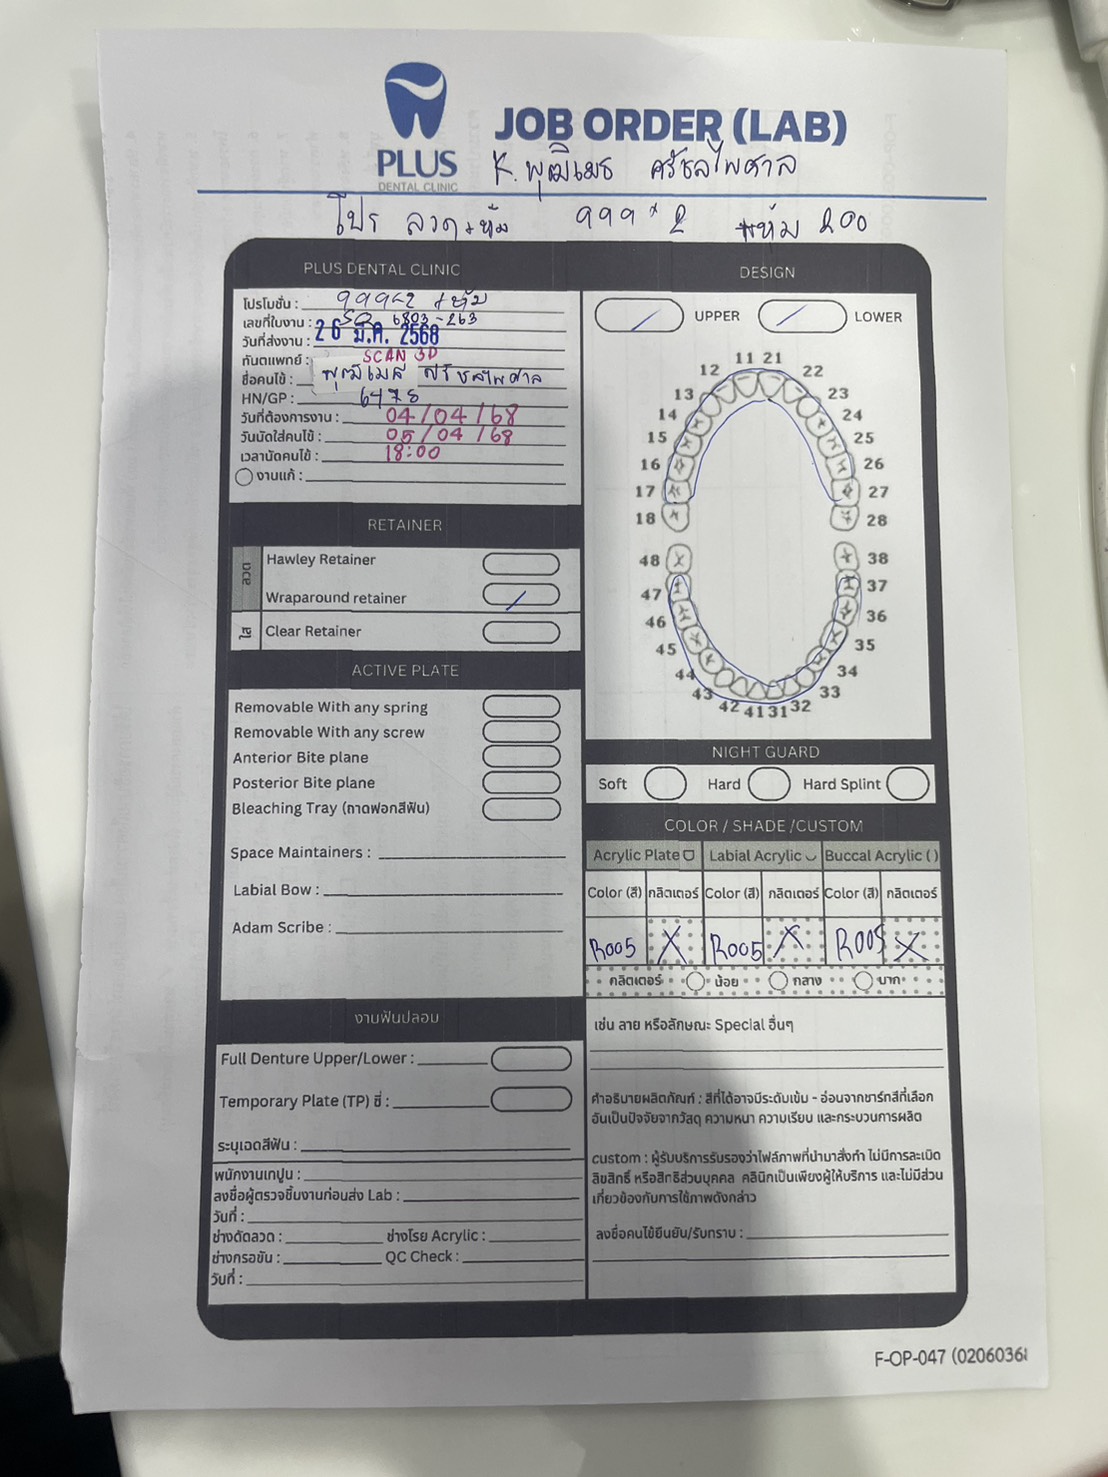 PLUS
DENTAL CLINIC
JOB ORDER (LAB)
K. พุฒิเมธ ศรัชลไพศาล
โปร ลวด+หุ้ม 999 x 2 หุ้ม 200
PLUS DENTAL CLINIC
โปรโมชั่น : 999x2 +หุ้ม
เลขที่ใบงาน : 6803-263
วันที่ส่งงาน : 26 มี.ค. 2568
ทันตแพทย์ : SCAN 3D
ชื่อคนไข้ : พุฒิเมธ ศรัชลไพศาล
HN/GP : 6478
วันที่ต้องการงาน : 04/04/68
วันนัดใส่คนไข้ : 05/04/68
เวลานัดคนไข้ : 18:00
งานแก้ :
RETAINER
ลวด
Hawley Retainer
Wraparound retainer
ใส
Clear Retainer
ACTIVE PLATE
Removable With any spring
Removable With any screw
Anterior Bite plane
Posterior Bite plane
Bleaching Tray (ถาดฟอกสีฟัน)
Space Maintainers :
Labial Bow :
Adam Scribe :
งานฟันปลอม
Full Denture Upper/Lower :
Temporary Plate (TP) ซี่ :
ระบุเฉดสีฟัน :
พนักงานเทปูน :
ลงชื่อผู้ตรวจชิ้นงานก่อนส่ง Lab :
วันที่ :
ช่างดัดลวด : ช่างโรย Acrylic :
ช่างกรอขัน : QC Check :
วันที่ :
DESIGN
UPPER LOWER
11 21
12 22
13 23
14 24
15 25
16 26
17 27
18 28
48 38
47 37
46 36
45 35
44 34
43 33
42 41 31 32
NIGHT GUARD
Soft Hard Hard Splint
COLOR / SHADE /CUSTOM
Acrylic Plate Labial Acrylic Buccal Acrylic ( )
Color (สี) กลิตเตอร์ Color (สี) กลิตเตอร์ Color (สี) กลิตเตอร์
R005 X R005 X R005 X
กลิตเตอร์ น้อย กลาง มาก
เช่น ลาย หรือลักษณะ Special อื่นๆ
คำอธิบายผลิตภัณฑ์ : สีที่ได้อาจมีระดับเข้ม - อ่อนจากชาร์ทสีที่เลือก
อันเป็นปัจจัยจากวัสดุ ความหนา ความเรียบ และกระบวนการผลิต
custom : ผู้รับบริการรับรองว่าไฟล์ภาพที่นำมาสั่งทำ ไม่มีการละเมิด
ลิขสิทธิ์ หรือสิทธิส่วนบุคคล คลินิกเป็นเพียงผู้ให้บริการ และไม่มีส่วน
เกี่ยวข้องกับการใช้ภาพดังกล่าว
ลงชื่อคนไข้ยืนยัน/รับทราบ :
F-OP-047 (0206036